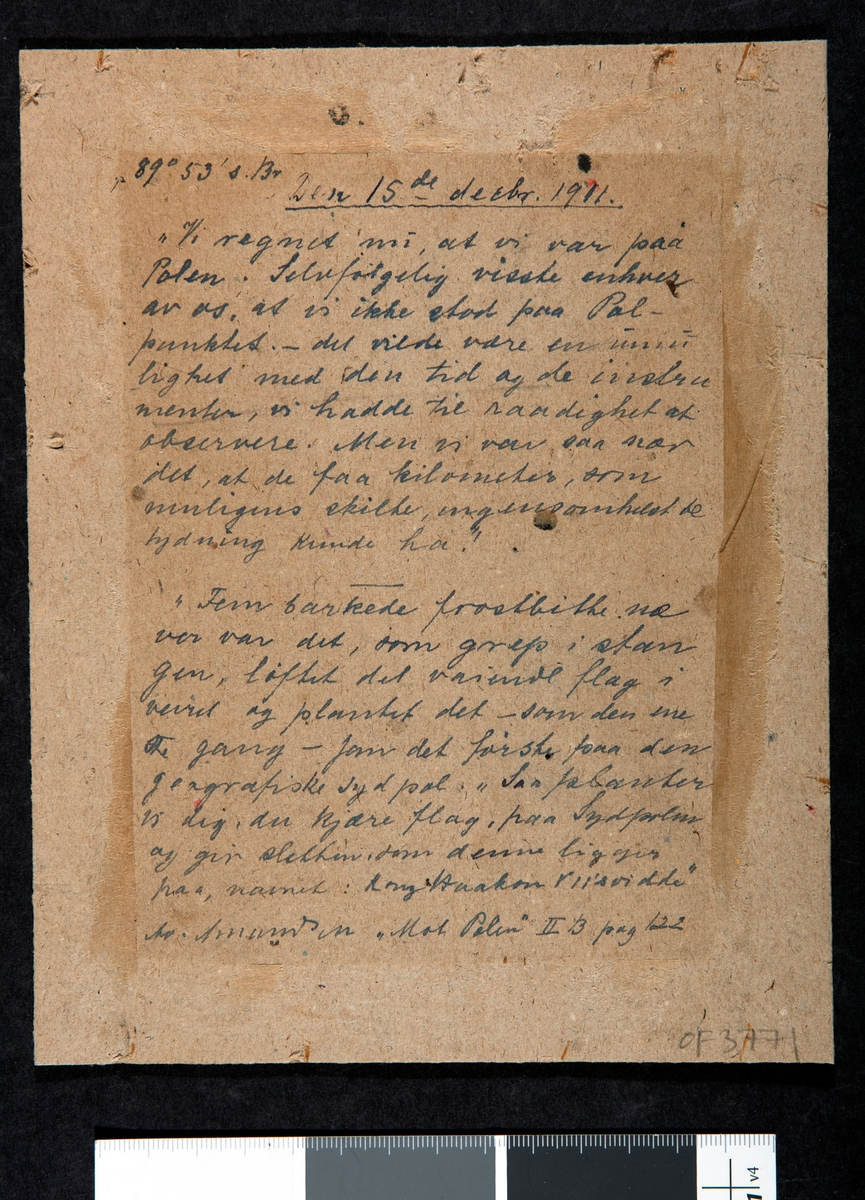 89° 53' s. Br
Den 15de decbr. 1911.
"Vi regnet nu, at vi var paa
Polen. Selvfølgelig visste enhver
av os, at vi ikke stod paa Pol-
punktet. – det vilde være en umu
lighet med den tid og de instru
menter, vi hadde til raadighet at
observere. Men vi var saa nær
det, at de faa kilometer, som
muligens skilte, ingensomhelst be
tydning kunde ha."
"Fem barkede frostbitte næ
ver var det, som grep i stan
gen, løftet det vaiende flag i
veiret og plantet det – som den ene
ste gang – som det første paa den
geografiske sydpol. "Saa planter
vi dig, du kjære flag, paa Sydpolen
og gir sletten, som denne ligger
paa, navnet: Kong Haakon VII's vidde"
Av. Amundsen "Mot Polen" II B pag 622
OF 3771
v4